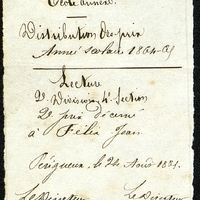 École annexe.
Distribution des prix
Année scolaire 1864-65
Lecture
2e Division 4e Section
2e prix décerné
à Félix Jean
Périgueux, le 24 Août
Le Directeur
Le Directeur